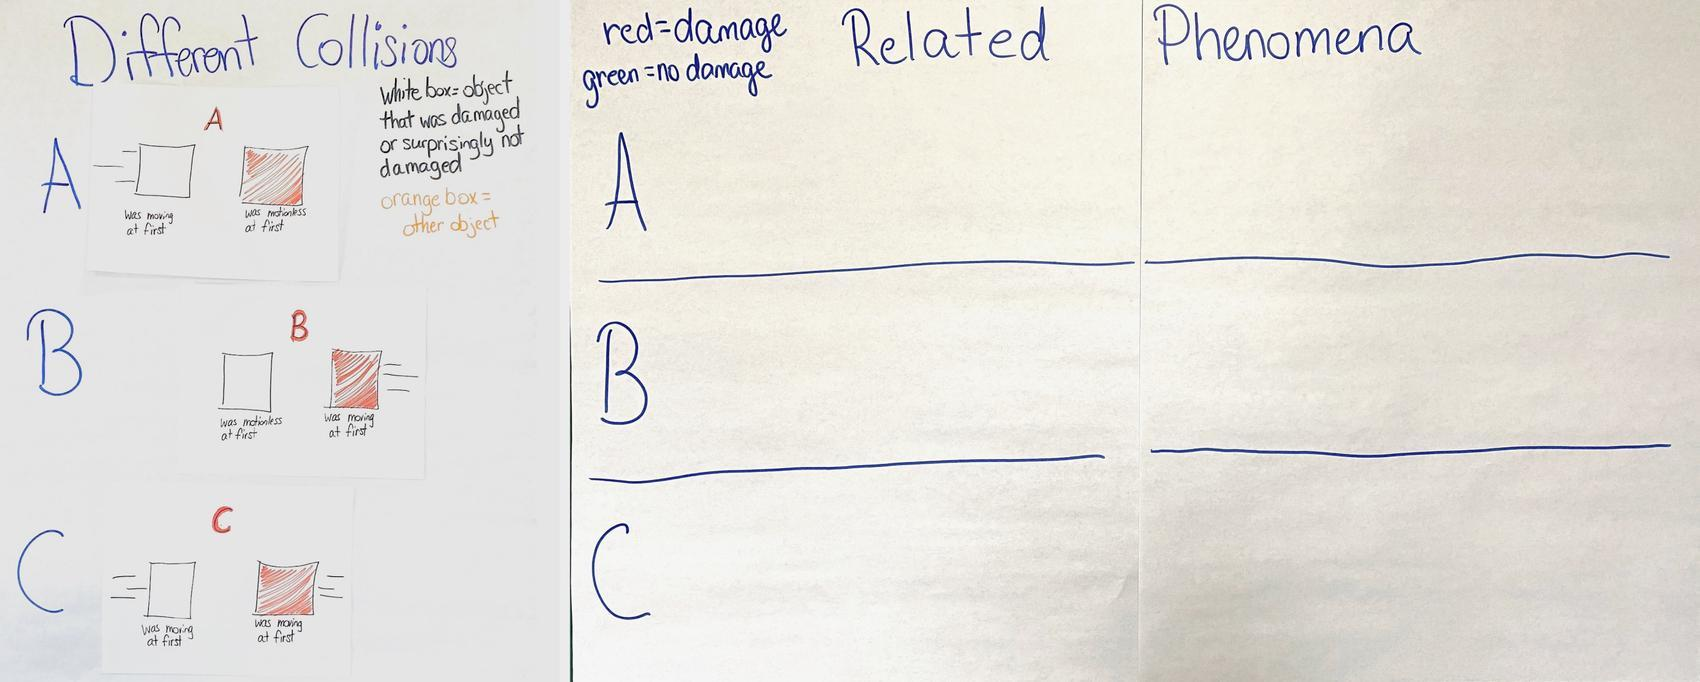 Different Collisions
White box = object
that was damaged
or surprisingly not
damaged
orange box =
other object
A
A
was moving
at first
was motionless
at first
B
B
was motionless
at first
was moving
at first
C
C
was moving
at first
was moving
at first
red=damage
green=no damage
Related Phenomena
A
B
C